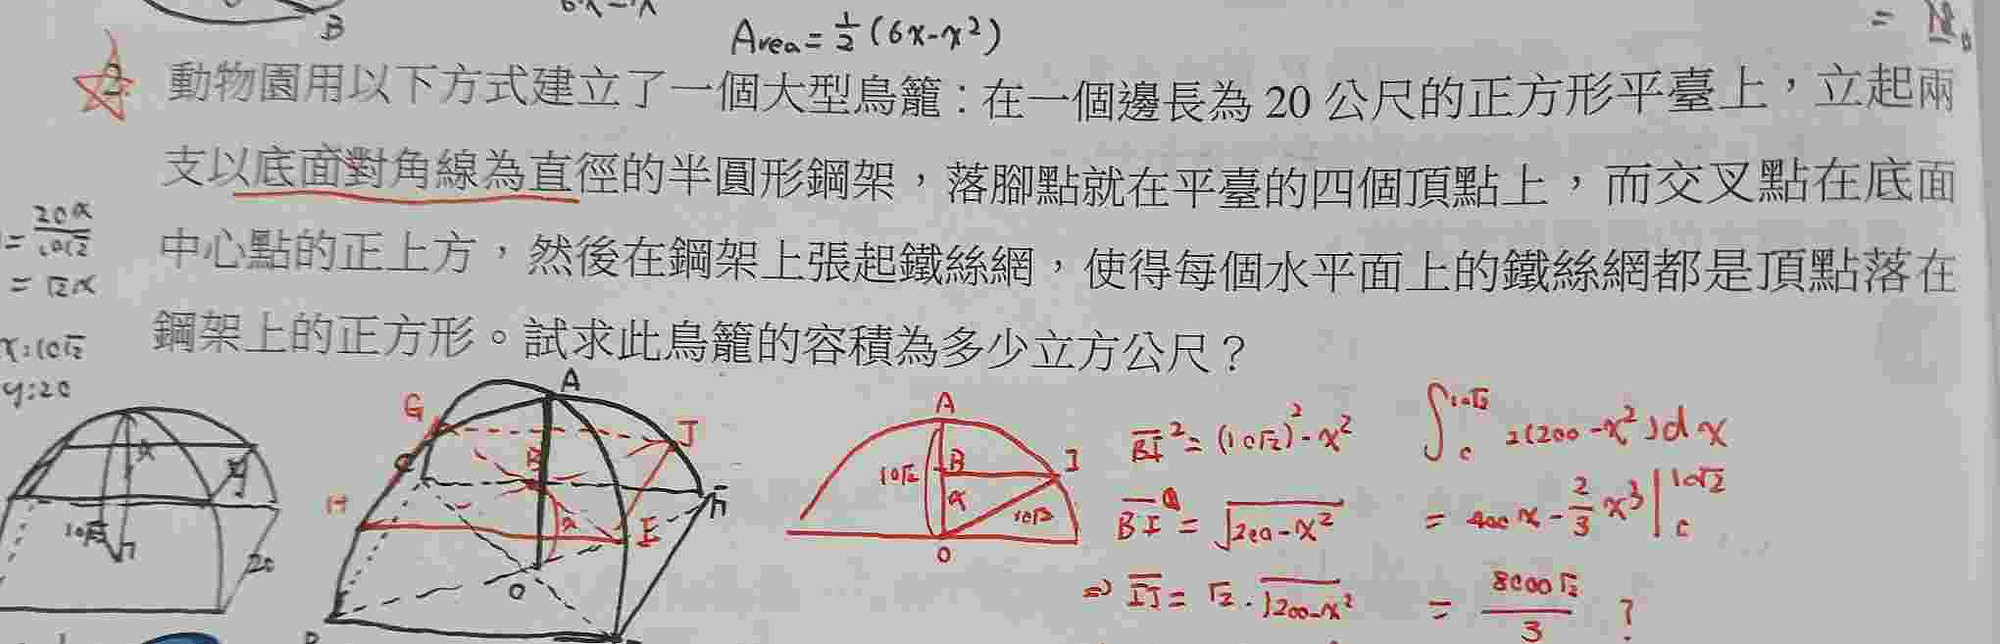 B
Area = 1/2 (6x-x²)
2. 動物園用以下方式建立了一個大型鳥籠:在一個邊長為 20 公尺的正方形平臺上,立起兩
支以底面對角線為直徑的半圓形鋼架,落腳點就在平臺的四個頂點上,而交叉點在底面
中心點的正上方,然後在鋼架上張起鐵絲網,使得每個水平面上的鐵絲網都是頂點落在
鋼架上的正方形。試求此鳥籠的容積為多少立方公尺?
= 20x/10√2
= √2x
x:10√2
y:20
x
10√2
20
A
G
J
B
H
I
x
O
A
B
I
10√2
x
10√2
O
BI² = (10√2)² - x²
BI = √200-x²
⇒ IJ = √2 · √200-x²
∫₀^10√2 2(200-x²)dx
= 400x - 2/3 x³ |₀^10√2
= 8000√2/3 ?